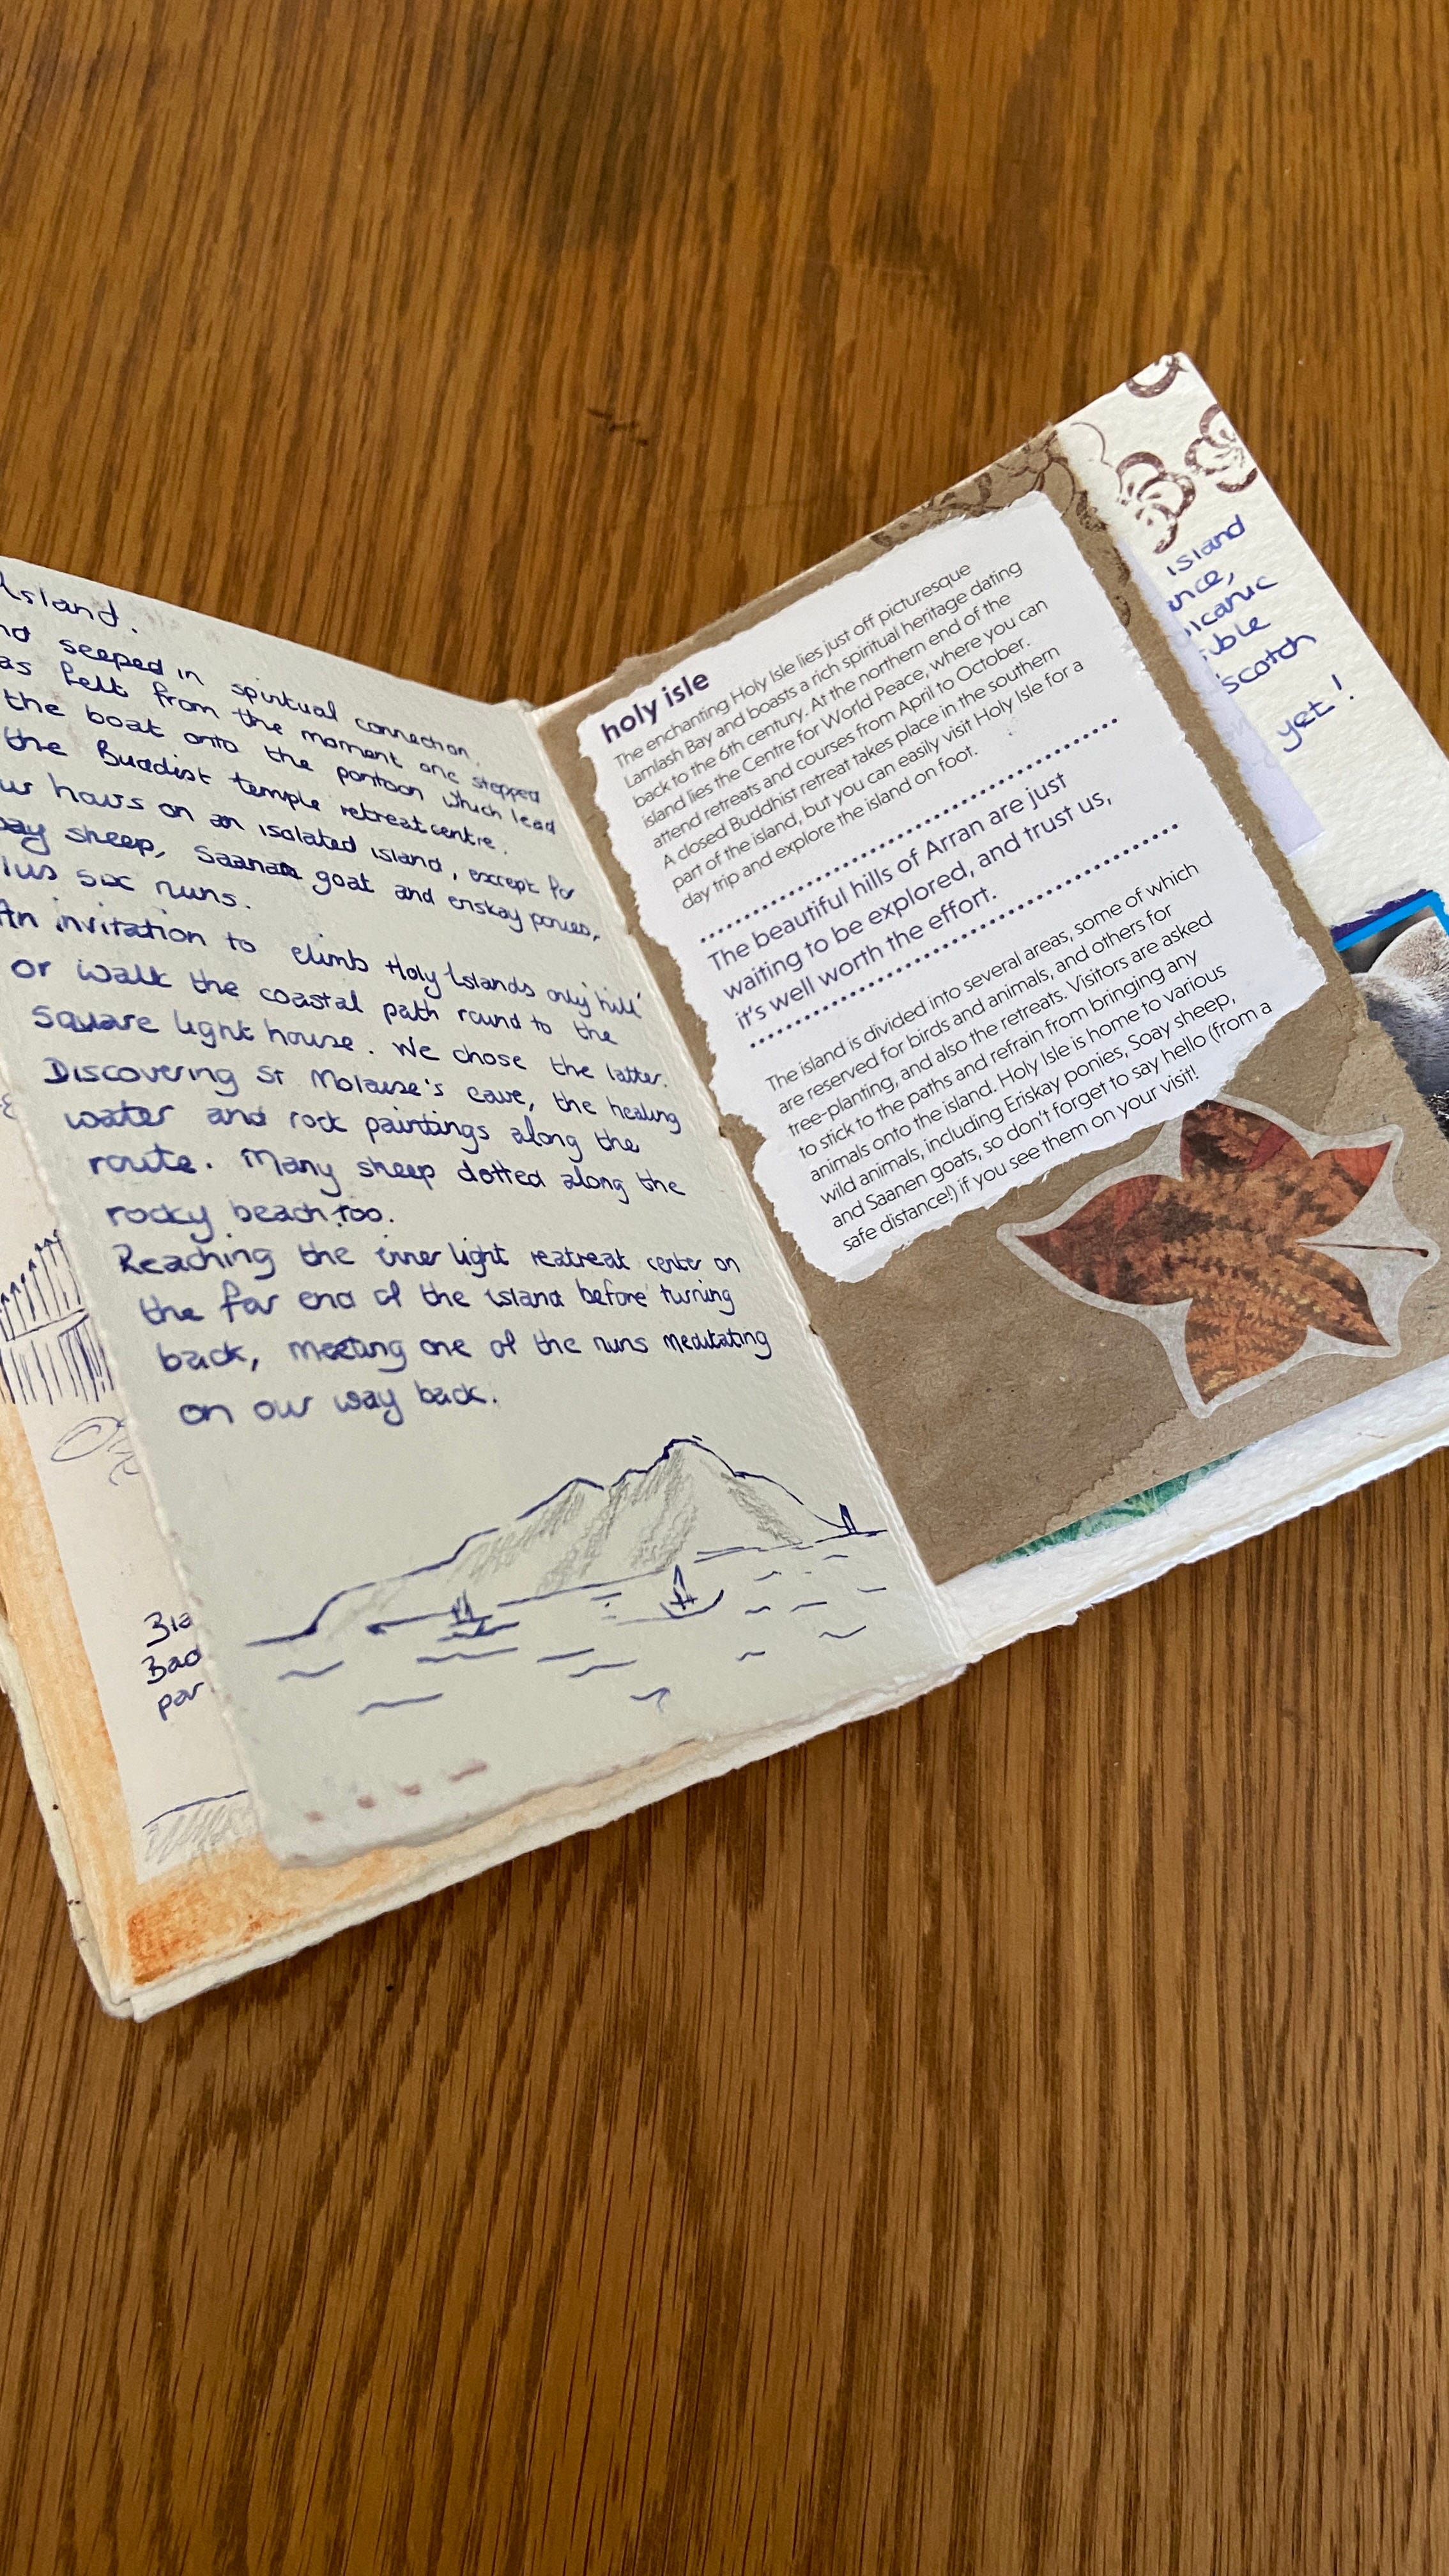 Island.
seeped in spiritual connection.
felt from the moment one stepped
the boat onto the pontoon which lead
the Buddist temple retreat centre.
hours on an isolated island, except for
sheep, Saanan goat and eriskay ponies,
six nuns.
An invitation to climb Holy Islands only 'hill'
or walk the coastal path round to the
square light house. We chose the latter.
Discovering St Molaise's cave, the healing
water and rock paintings along the
route. Many sheep dotted along the
rocky beach too.
Reaching the inner light reatreat center on
the far end of the island before turning
back, meeting one of the nuns meditating
on our way back.
holy isle
The enchanting Holy Isle lies just off picturesque
Lamlash Bay and boasts a rich spiritual heritage dating
back to the 6th century. At the northern end of the
island lies the Centre for World Peace, where you can
attend retreats and courses from April to October.
A closed Buddhist retreat takes place in the southern
part of the island, but you can easily visit Holy Isle for a
day trip and explore the island on foot.
The beautiful hills of Arran are just
waiting to be explored, and trust us,
it's well worth the effort.
The island is divided into several areas, some of which
are reserved for birds and animals, and others for
tree-planting, and also the retreats. Visitors are asked
to stick to the paths and refrain from bringing any
animals onto the island. Holy Isle is home to various
wild animals, including Eriskay ponies, Soay sheep,
and Saanen goats, so don't forget to say hello (from a
safe distance!) if you see them on your visit!
island
scotch
yet!